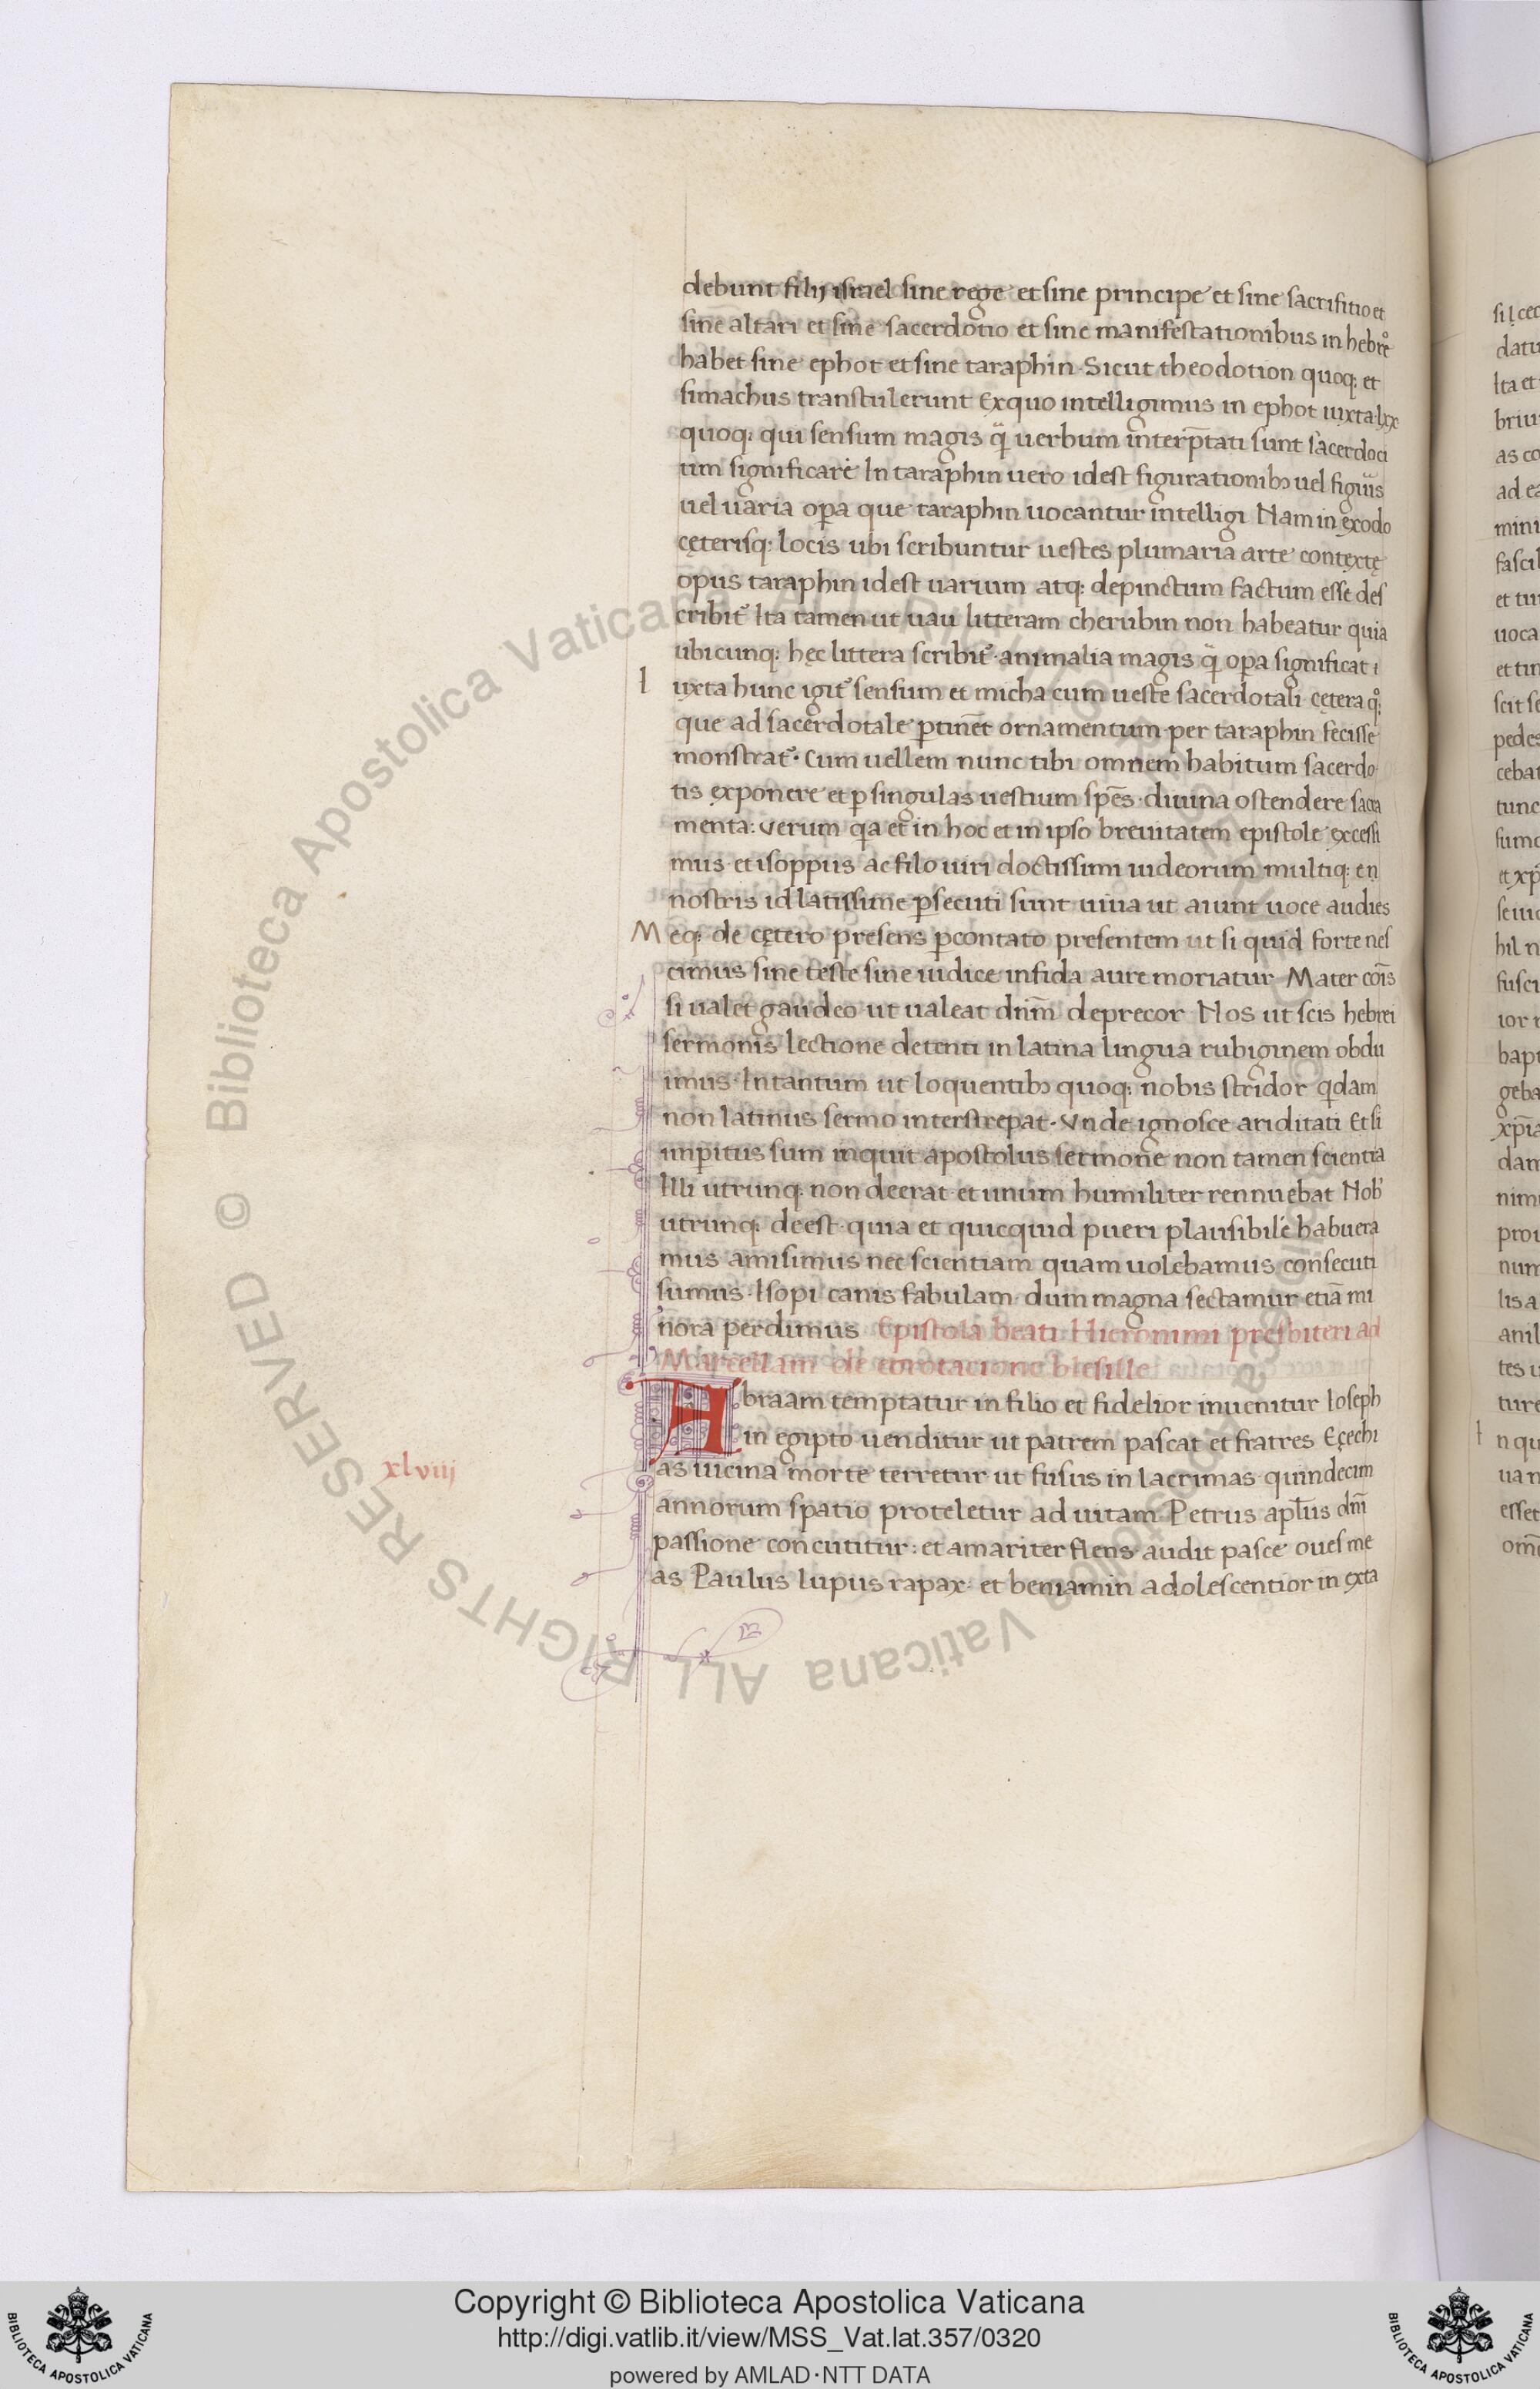 debunt filij israel sine rege et sine principe et sine sacrifitio et
sine altari et sine sacerdotio et sine manifestationibus in hebreo
habet sine ephot et sine taraphin. Sicut theodotion quoq; et
simachus transtulerunt Ex quo intelligimus in ephot iuxta lxx
quoq; qui sensum magis q̃ uerbum interp̃tati sunt sacerdoci
um significare In taraphin uero id est figurationibꝰ uel figuris
uel uaria oꝑa que taraphin uocantur intelligi Nam in exodo
cęterisq; locis ubi scribuntur uestes plumaria arte contextę
opus taraphin id est uarium atq; depinctum factum esse des
cribit᷑ Ita tamen ut uau litteram cherubin non habeatur quia
ubicunq; hęc littera scribit᷑ animalia magis q̃ oꝑa significat i
I uxta hunc igit᷑ sensum et micha cum ueste sacerdotali cętera q̊;
que ad sacerdotale ꝑtinẽt ornamentum per taraphin fecisse
monstrat᷑. Cum uellem nunc tibi omnem habitum sacerdo
tis exponere et ꝑ singulas uestium sp̃es diuina ostendere sacra
menta: Verum qa et in hoc et in ipso breuitatem epistole excessi
mus et isoppus ac filo uiri doctissimi iudeorum multiq; eñ
nostris id latissime ꝑsecuti sunt uiua ut aiunt uoce audies
M eq; de cętero presens ꝑcontato presentem ut si quid forte nes
cimus sine teste sine iudice in fida aure moriatur Mater cõis
si ualet gaudeo ut ualeat dñm deprecor Nos ut scis hebrei
sermonis lectione detenti in latina lingua rubiginem obdu
imus. Intantum ut loquentibꝰ quoq; nobis stridor qdam
non latinus sermo interstrepat. Vnde ignosce ariditati Et si
imꝑitus sum inquit apostolus sermone non tamen scientia
Illi utrunq; non deerat et unum humiliter rennuebat Nob᷑
utrunq; deest quia et quicquid pueri plausibile habuera
mus amisimus nec scientiam quam uolebamus consecuti
sumus. Isopi canis fabulam dum magna sectamur etiã mi
nora perdimus Epistola beati Hieronimi presbiteri ad
Marcellam de egrotacione blesille
Abraam temptatur in filio et fidelior inuenitur Ioseph
in egipto uenditur ut patrem pascat et fratres Eçechi
xlviij
as uicina morte terretur ut fusus in lacrimas quindecim
annorum spatio proteletur ad uitam Petrus apl̃us dñi
passione concutitur: et amariter flens audit pasce oues me
as Paulus lupus rapax et beniamin adolescentior in exta
© Biblioteca Apostolica Vaticana ALL RIGHTS RESERVED
Copyright © Biblioteca Apostolica Vaticana
http://digi.vatlib.it/view/MSS_Vat.lat.357/0320
powered by AMLAD·NTT DATA
BIBLIOTECA APOSTOLICA VATICANA
BIBLIOTECA APOSTOLICA VATICANA